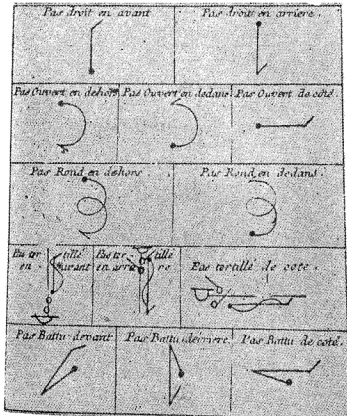 Pas droit en avant
Pas droit en arriere.
Pas Ouvert en dehors
Pas Ouvert en dedans
Pas Ouvert de coté
Pas Rond en dehors
Pas Rond en dedans.
Pas tor tillé
en avant
Pas tor tillé
en arrie re
Pas tortillé de coté.
Pas Battu devant
Pas Battu derriere
Pas Battu de coté.